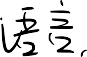 语言,